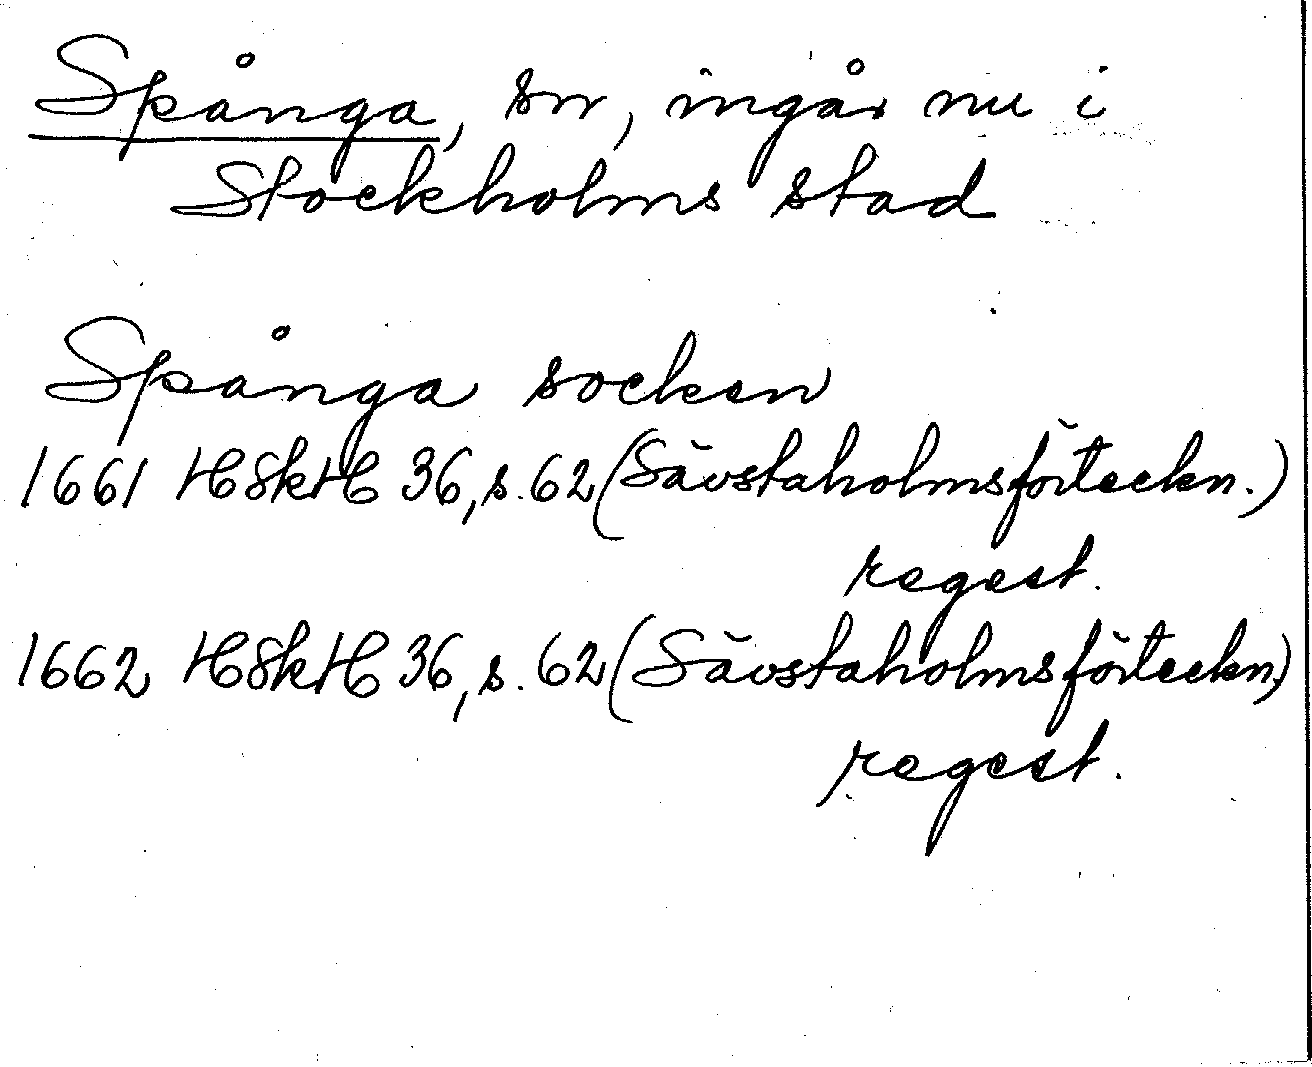 Spånga, sn, ingår nu i
Stockholms stad
Spånga socken
1661 HSkH 36, s. 62 (Sävstaholmsförteckn.)
regest.
1662 HSkH 36, s. 62 (Sävstaholmsförteckn.)
regest.